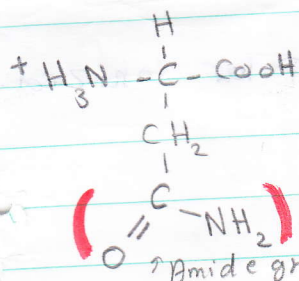 H
+ H3N - C - COOH
CH2
C
O NH2
↑Amide gr